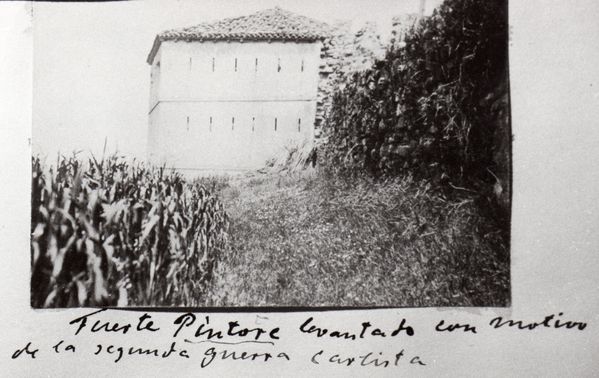 Fuerte Pintore levantado con motivo
de la segunda guerra carlista